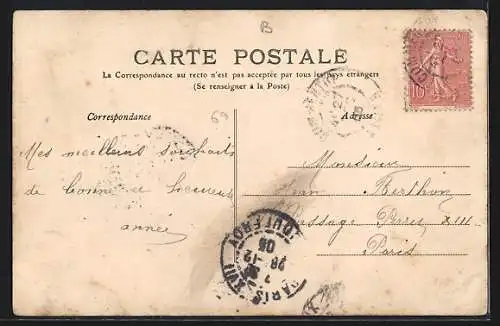 B
CARTE POSTALE
La Correspondance au recto n'est pas acceptée par tous les pays étrangers
(Se renseigner à la Poste)
Correspondance
Adresse
10
Mes meilleurs souhaits
de bonne et heureuse
année
Monsieur
Jean Berthon
Passage XIII
Paris
PARIS XVII
7
28-12
05